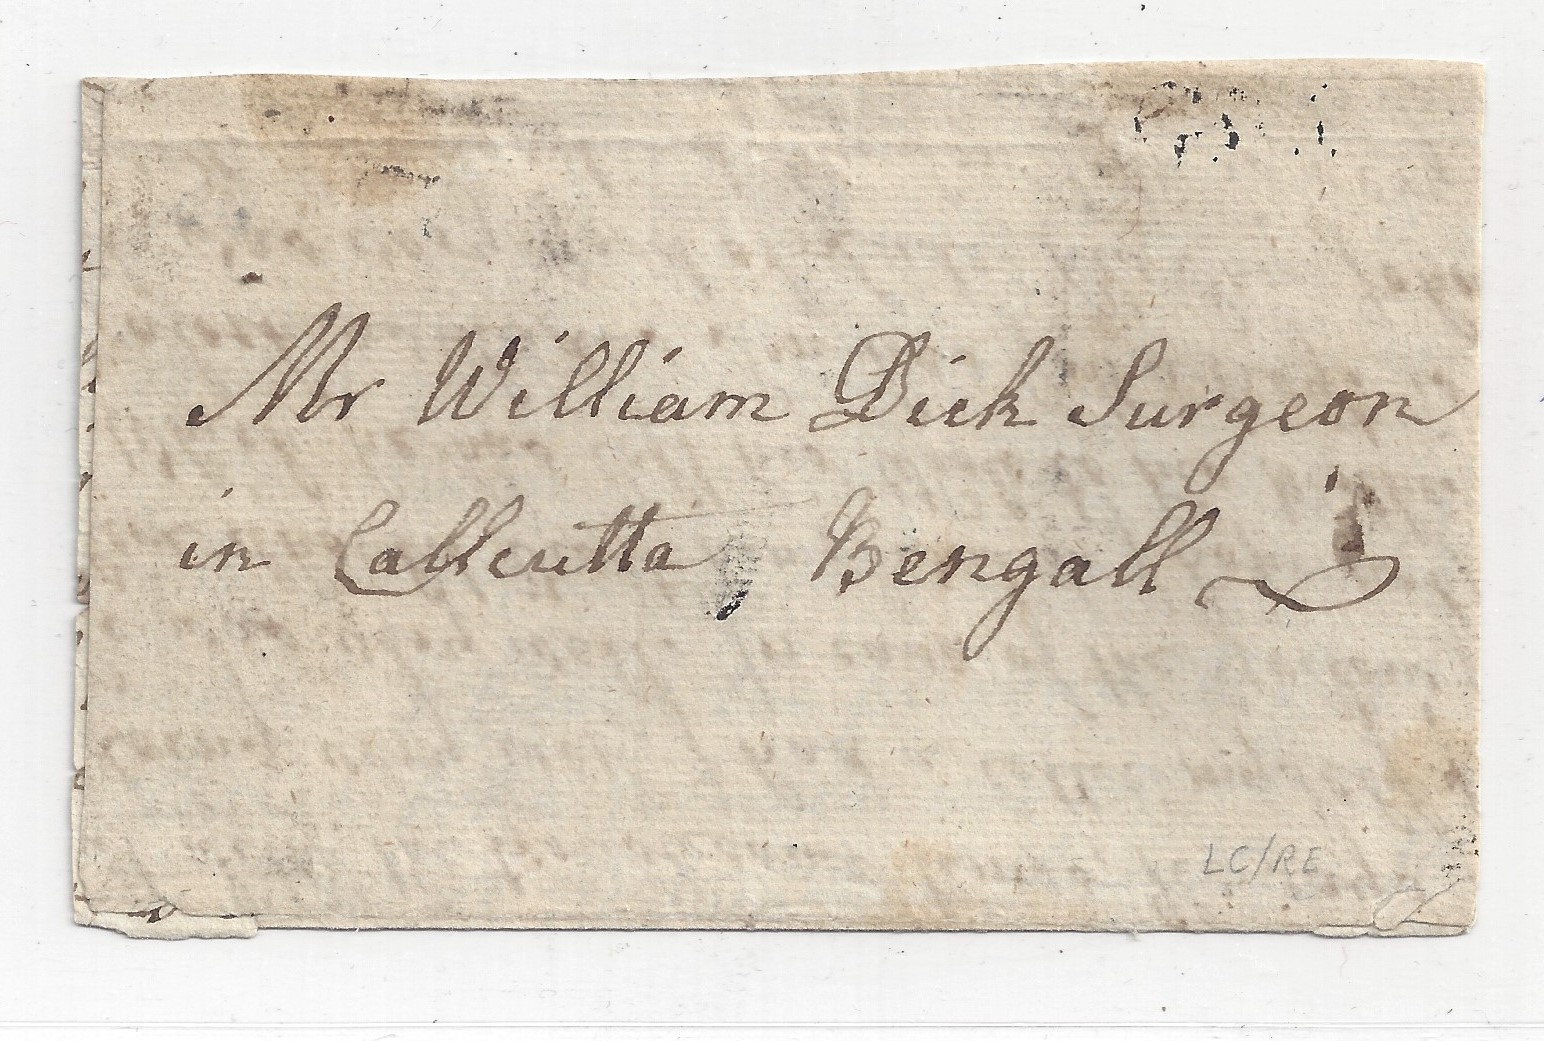 Mr William Dick Surgeon
in Callcutta Bengall
LC/RE